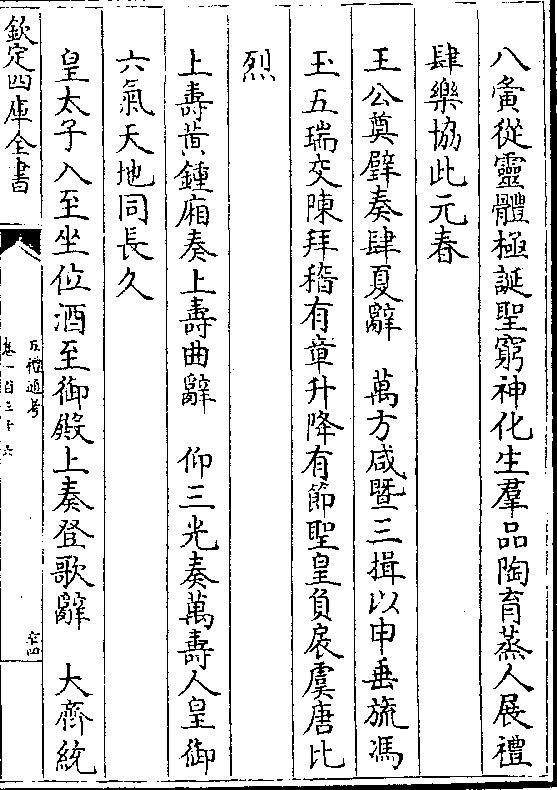 八夤從靈體極誕聖窮神化生羣品陶育蒸人展禮
肆樂協此元春
王公奠璧奏肆夏辭　萬方咸曁三揖以申垂旒馮
玉五瑞交陳拜稽有章升降有節聖皇負扆虞唐比
烈
上壽黃鍾廂奏上壽曲辭　仰三光奏萬壽人皇御
六氣天地同長久
皇太子入至坐位酒至御殿上奏登歌辭　大齊統
欽定四庫全書
五禮通考
卷一百三十六